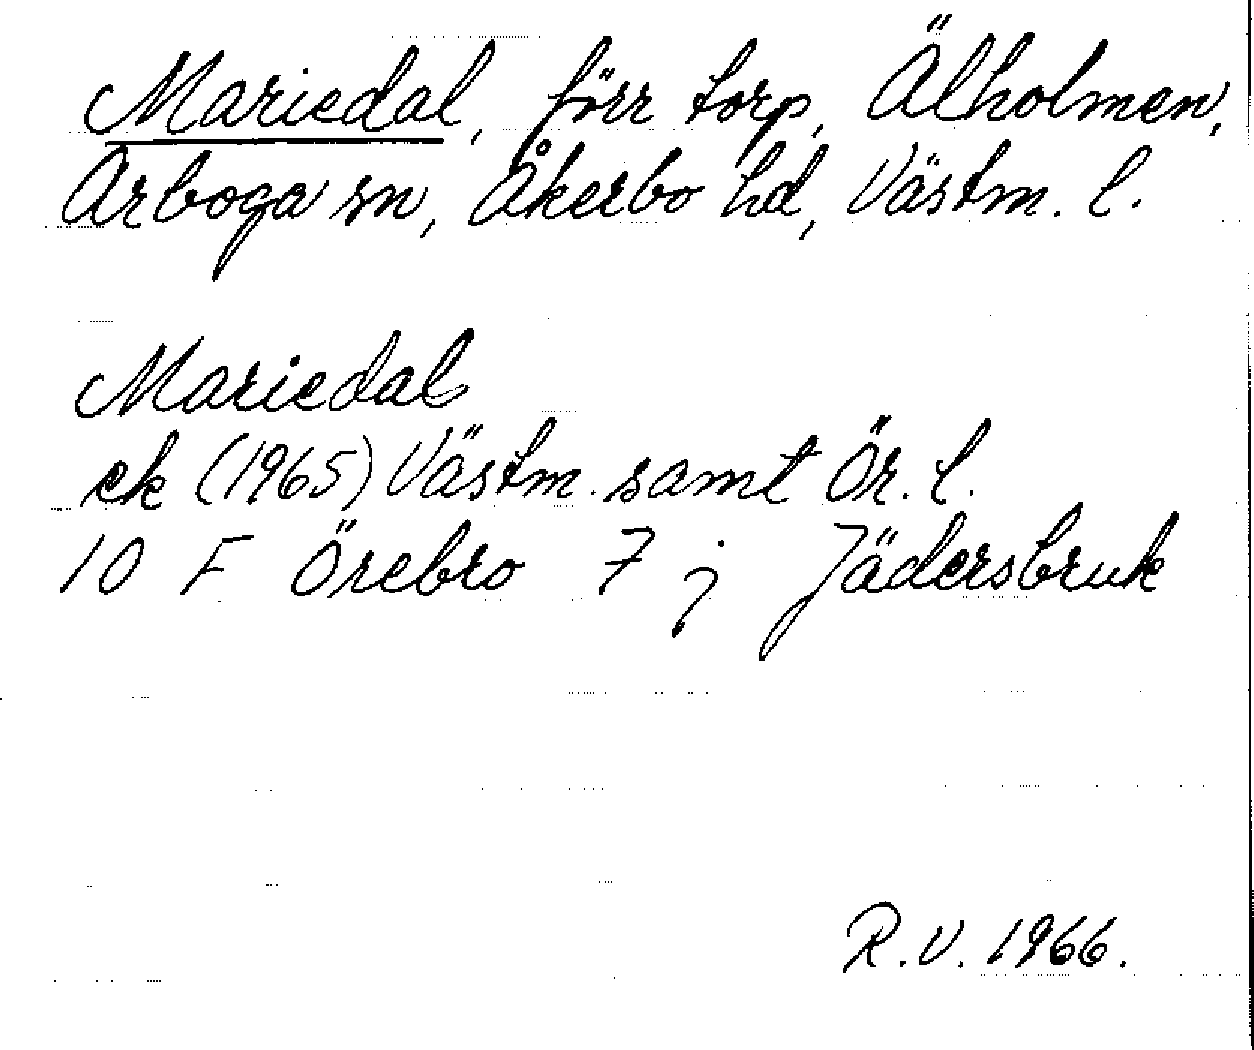 Mariedal, förr torp, Älholmen,
Arboga sn, Åkerbo hd, Västm. l.
Mariedal
ek (1965) Västm. samt Ör. l.
10 F Örebro 7 j Jädersbruk
R.V. 1966.